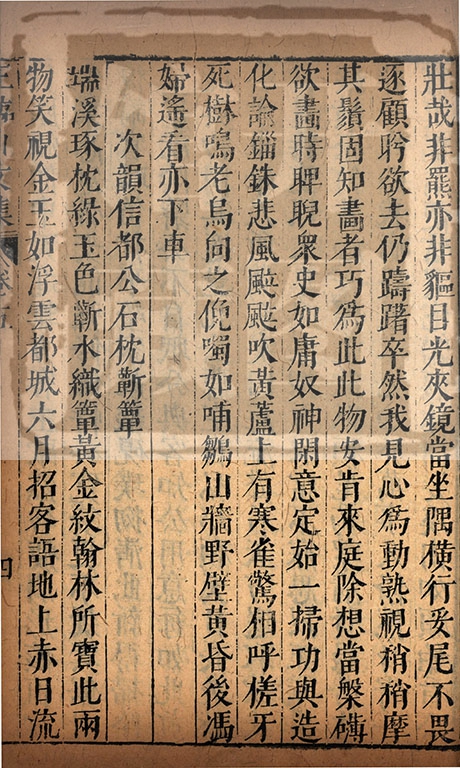 壯哉非羆亦非貙目光夾鏡當坐隅橫行妥尾不畏
逐顧盻欲去仍躊躇卒然我見心爲動熟視稍稍摩
其鬚固知畫者巧爲此此物安肯來庭除想當槃礴
欲畫時睥睨衆史如庸奴神閑意定始一掃功與造
化論錙銖悲風颭颭吹黃蘆上有寒雀驚相呼槎牙
死樹鳴老烏向之俛噣如哺鶵山牆野壁黃昏後馮
婦遙看亦下車
次韻信都公石枕蘄簟
端溪琢枕綠玉色蘄水織簟黃金紋翰林所寶此兩
物笑視金玉如浮雲都城六月招客語地上赤日流
四